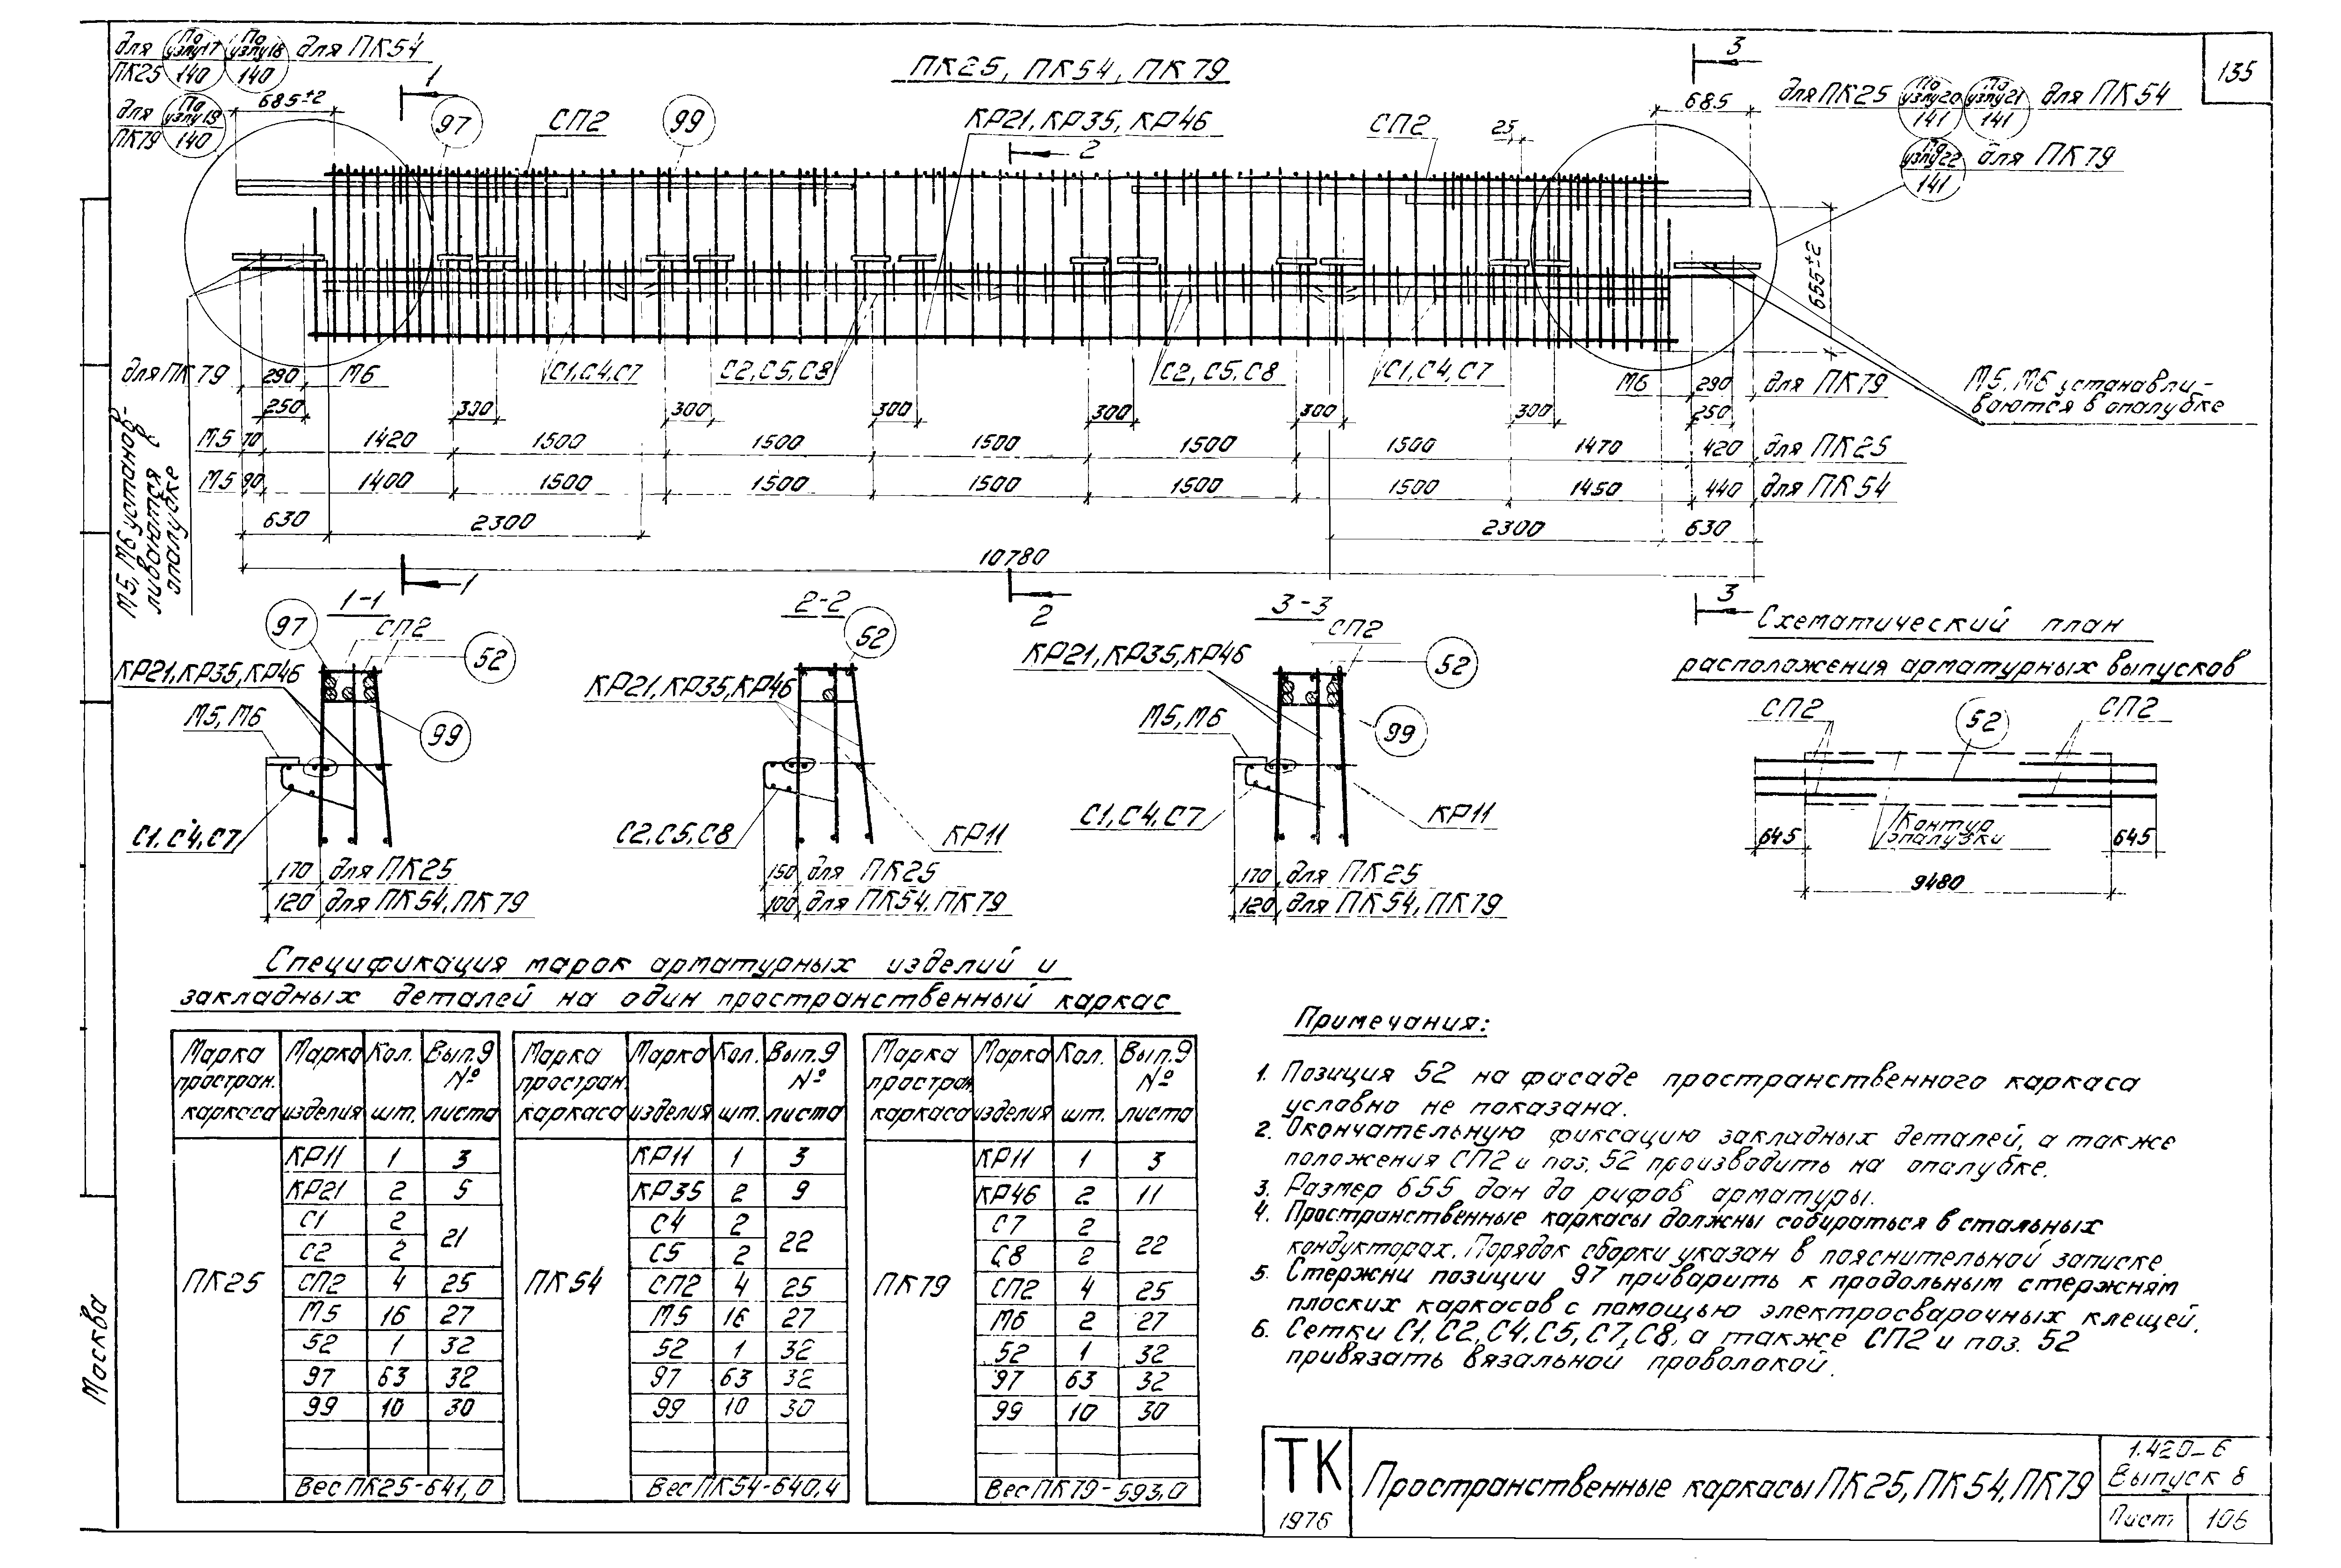 для
По узлу17
140
По узлу18
140
для ПК54
ПК25
для
По узлу19
140
ПК79
685±2
1
97
СП2
99
ПК25, ПК54, ПК79
КР21, КР35, КР46
2
СП2
25
3
685
для ПК25
По узлу20
141
По узлу21
141
для ПК54
По узлу22
141
для ПК79
135
655±2
для ПК79
290
М6
С1,С4,С7
С2,С5,С8
С2,С5,С8
С1,С4,С7
М6
290
для ПК79
М5,М6 устанавли-
ваются в опалубке
250
300
300
300
300
300
300
250
М5 70
1420
1500
1500
1500
1500
1500
1470
420
для ПК25
М5 90
1400
1500
1500
1500
1500
1500
1450
440
для ПК54
630
2300
2300
630
10780
М5, М6 устанав-
ливаются в
опалубке
1
2
3
1-1
97
СП2
52
КР21, КР35, КР46
М5, М6
99
С1, С4, С7
170
для ПК25
120
для ПК54, ПК79
2-2
52
КР21, КР35, КР46
С2, С5, С8
КР11
150
для ПК25
100
для ПК54, ПК79
3-3
СП2
КР21, КР35, КР46
52
М5, М6
99
С1, С4, С7
КР11
170
для ПК25
120
для ПК54, ПК79
Схематический план
расположения арматурных выпусков
СП2
52
СП2
Контур
опалубки
645
645
9480
Спецификация марок арматурных изделий и
закладных деталей на один пространственный каркас
Марка простран. каркаса | Марка изделия | Кол. шт. | Вып.9 № листа
ПК25
КР11 1 3
КР21 2 5
С1 2 21
С2 2
СП2 4 25
М5 16 27
52 1 32
97 63 32
99 10 30
Вес ПК25-641,0
Марка простран. каркаса | Марка изделия | Кол. шт. | Вып.9 № листа
ПК54
КР11 1 3
КР35 2 9
С4 2 22
С5 2
СП2 4 25
М5 16 27
52 1 32
97 63 32
99 10 30
Вес ПК54-640,4
Марка простран. каркаса | Марка изделия | Кол. шт. | Вып.9 № листа
ПК79
КР11 1 3
КР46 2 11
С7 2 22
С8 2
СП2 4 25
М6 2 27
52 1 32
97 63 32
99 10 30
Вес ПК79-593,0
Примечания:
1. Позиция 52 на фасаде пространственного каркаса
условно не показана.
2. Окончательную фиксацию закладных деталей, а также
положения СП2 и поз. 52 производить на опалубке.
3. Размер 655 дан до рифов арматуры.
4. Пространственные каркасы должны собираться в стальных
кондукторах. Порядок сборки указан в пояснительной записке.
5. Стержни позиции 97 приварить к продольным стержням
плоских каркасов с помощью электросварочных клещей.
6. Сетки С1, С2, С4, С5, С7, С8, а также СП2 и поз. 52
привязать вязальной проволокой.
Москва
ТК
1976
Пространственные каркасы ПК25, ПК54, ПК79
1.420-6
Выпуск 8
Лист
106